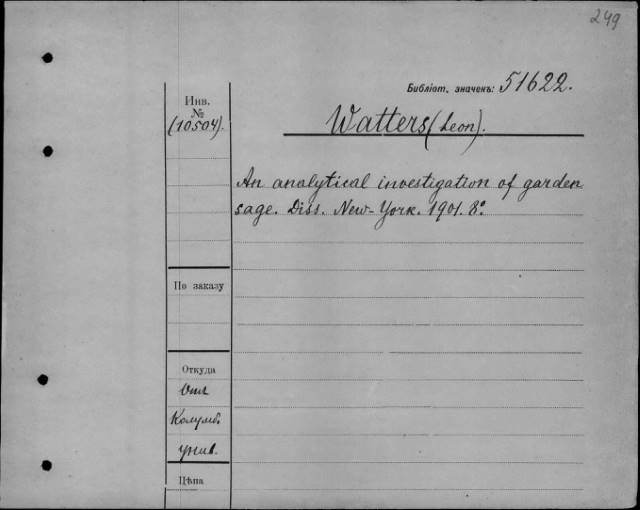 249
Библіот. значекъ: 51622.
Инв.
№
(10504).
Watters (Leon).
An analytical investigation of garden
sage. Diss. New-York. 1901. 8°
По заказу
Откуда
Отъ
Колумб.
унив.
Цѣна